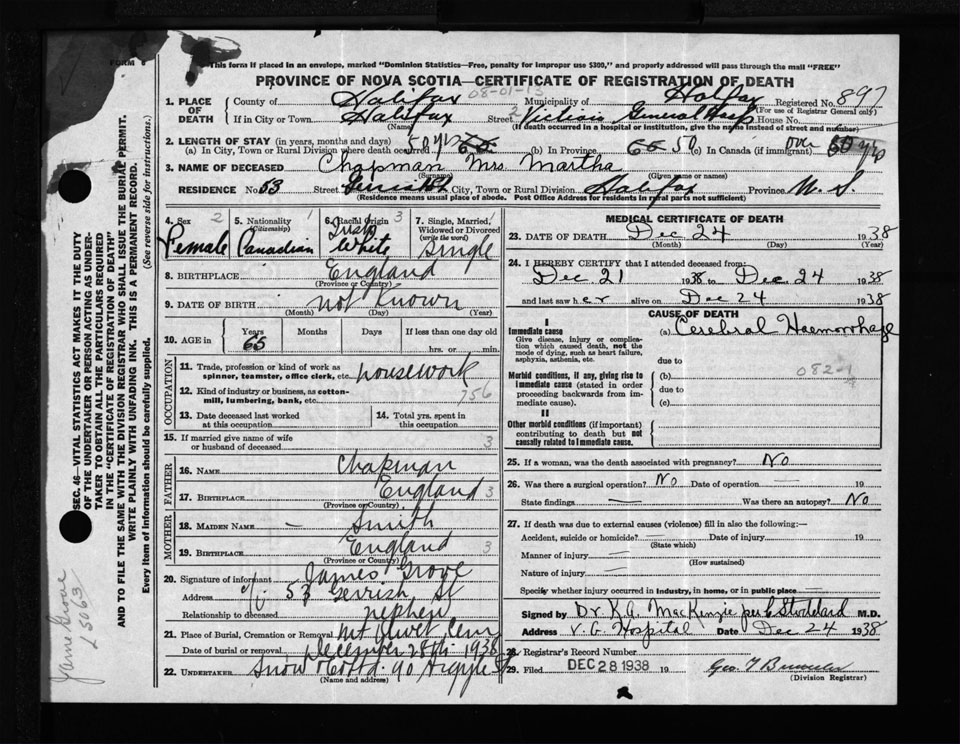 FORM 6
This form if placed in an envelope, marked "Dominion Statistics—Free, penalty for improper use $300," and properly addressed will pass through the mail "FREE"
PROVINCE OF NOVA SCOTIA—CERTIFICATE OF REGISTRATION OF DEATH
08-01-13
1. PLACE OF DEATH County of Halifax Municipality of Halifax Registered No. 897
(For use of Registrar General only)
If in City or Town Halifax Street Victoria General Hosp House No.
(Name) (If death occurred in a hospital or institution, give the name instead of street and number)
2. LENGTH OF STAY (in years, months and days)
(a) In City, Town or Rural Division where death occurred 50 yrs (b) In Province 50 (c) In Canada (if immigrant) over 50 yrs
3. NAME OF DECEASED Chapman Mrs. Martha
(Surname) (Given name or names)
RESIDENCE No. 53 Street Gerrish City, Town or Rural Division Halifax Province N. S.
(Residence means usual place of abode. Post Office Address for residents in rural parts not sufficient)
4. Sex 2 Female
5. Nationality (Citizenship) 1 Canadian
6. Racial Origin 3 Irish White
7. Single, Married, Widowed or Divorced (write the word) 1 Single
8. BIRTHPLACE England
(Province or Country)
9. DATE OF BIRTH not known
(Month) (Day) (Year)
10. AGE in Years Months Days If less than one day old
65 hrs. or min.
OCCUPATION
11. Trade, profession or kind of work as spinner, teamster, office clerk, etc. housework
12. Kind of industry or business, as cotton-mill, lumbering, bank, etc. 756
13. Date deceased last worked at this occupation
14. Total yrs. spent in this occupation
15. If married give name of wife or husband of deceased 3
FATHER
16. NAME Chapman
17. BIRTHPLACE England 3
(Province or Country)
MOTHER
18. MAIDEN NAME — Smith
19. BIRTHPLACE England 3
(Province or Country)
20. Signature of informant James Grove
Address c/o 53 Gerrish St
Relationship to deceased nephew
21. Place of Burial, Cremation or Removal Mt Olivet Cem
Date of burial or removal December 28th 1938
22. UNDERTAKER Snow & Co Ltd. 90 Argyle St
(Name and address)
MEDICAL CERTIFICATE OF DEATH
23. DATE OF DEATH Dec 24 1938
(Month) (Day) (Year)
24. I HEREBY CERTIFY that I attended deceased from:
Dec 21 1938 to Dec 24 1938
and last saw her alive on Dec 24 1938
CAUSE OF DEATH
I
Immediate cause (a) Cerebral Haemorrhage
Give disease, injury or complication which caused death, not the mode of dying, such as heart failure, asphyxia, asthenia, etc.
due to
082-1
Morbid conditions, if any, giving rise to immediate cause (stated in order proceeding backwards from immediate cause).
(b)
due to
(c)
II
Other morbid conditions (if important) contributing to death but not causally related to immediate cause.
25. If a woman, was the death associated with pregnancy? No
26. Was there a surgical operation? No Date of operation — 19
State findings — Was there an autopsy? No
27. If death was due to external causes (violence) fill in also the following:—
Accident, suicide or homicide? — Date of injury 19
(State which)
Manner of injury —
(How sustained)
Nature of injury —
Specify whether injury occurred in industry, in home, or in public place
Signed by Dr. K.A. MacKenzie per C Stoddard M.D.
Address V. G. Hospital Date Dec 24 1938
28. Registrar's Record Number
29. Filed DEC 28 1938 19
(Division Registrar)
SEC. 46—VITAL STATISTICS ACT MAKES IT THE DUTY
OF THE UNDERTAKER OR PERSON ACTING AS UNDER-
TAKER TO OBTAIN ALL THE PARTICULARS REQUIRED
IN THE "CERTIFICATE OF REGISTRATION OF DEATH"
AND TO FILE THE SAME WITH THE DIVISION REGISTRAR WHO SHALL ISSUE THE BURIAL PERMIT.
WRITE PLAINLY WITH UNFADING INK. THIS IS A PERMANENT RECORD.
Every item of Information should be carefully supplied. (See reverse side for instructions.)